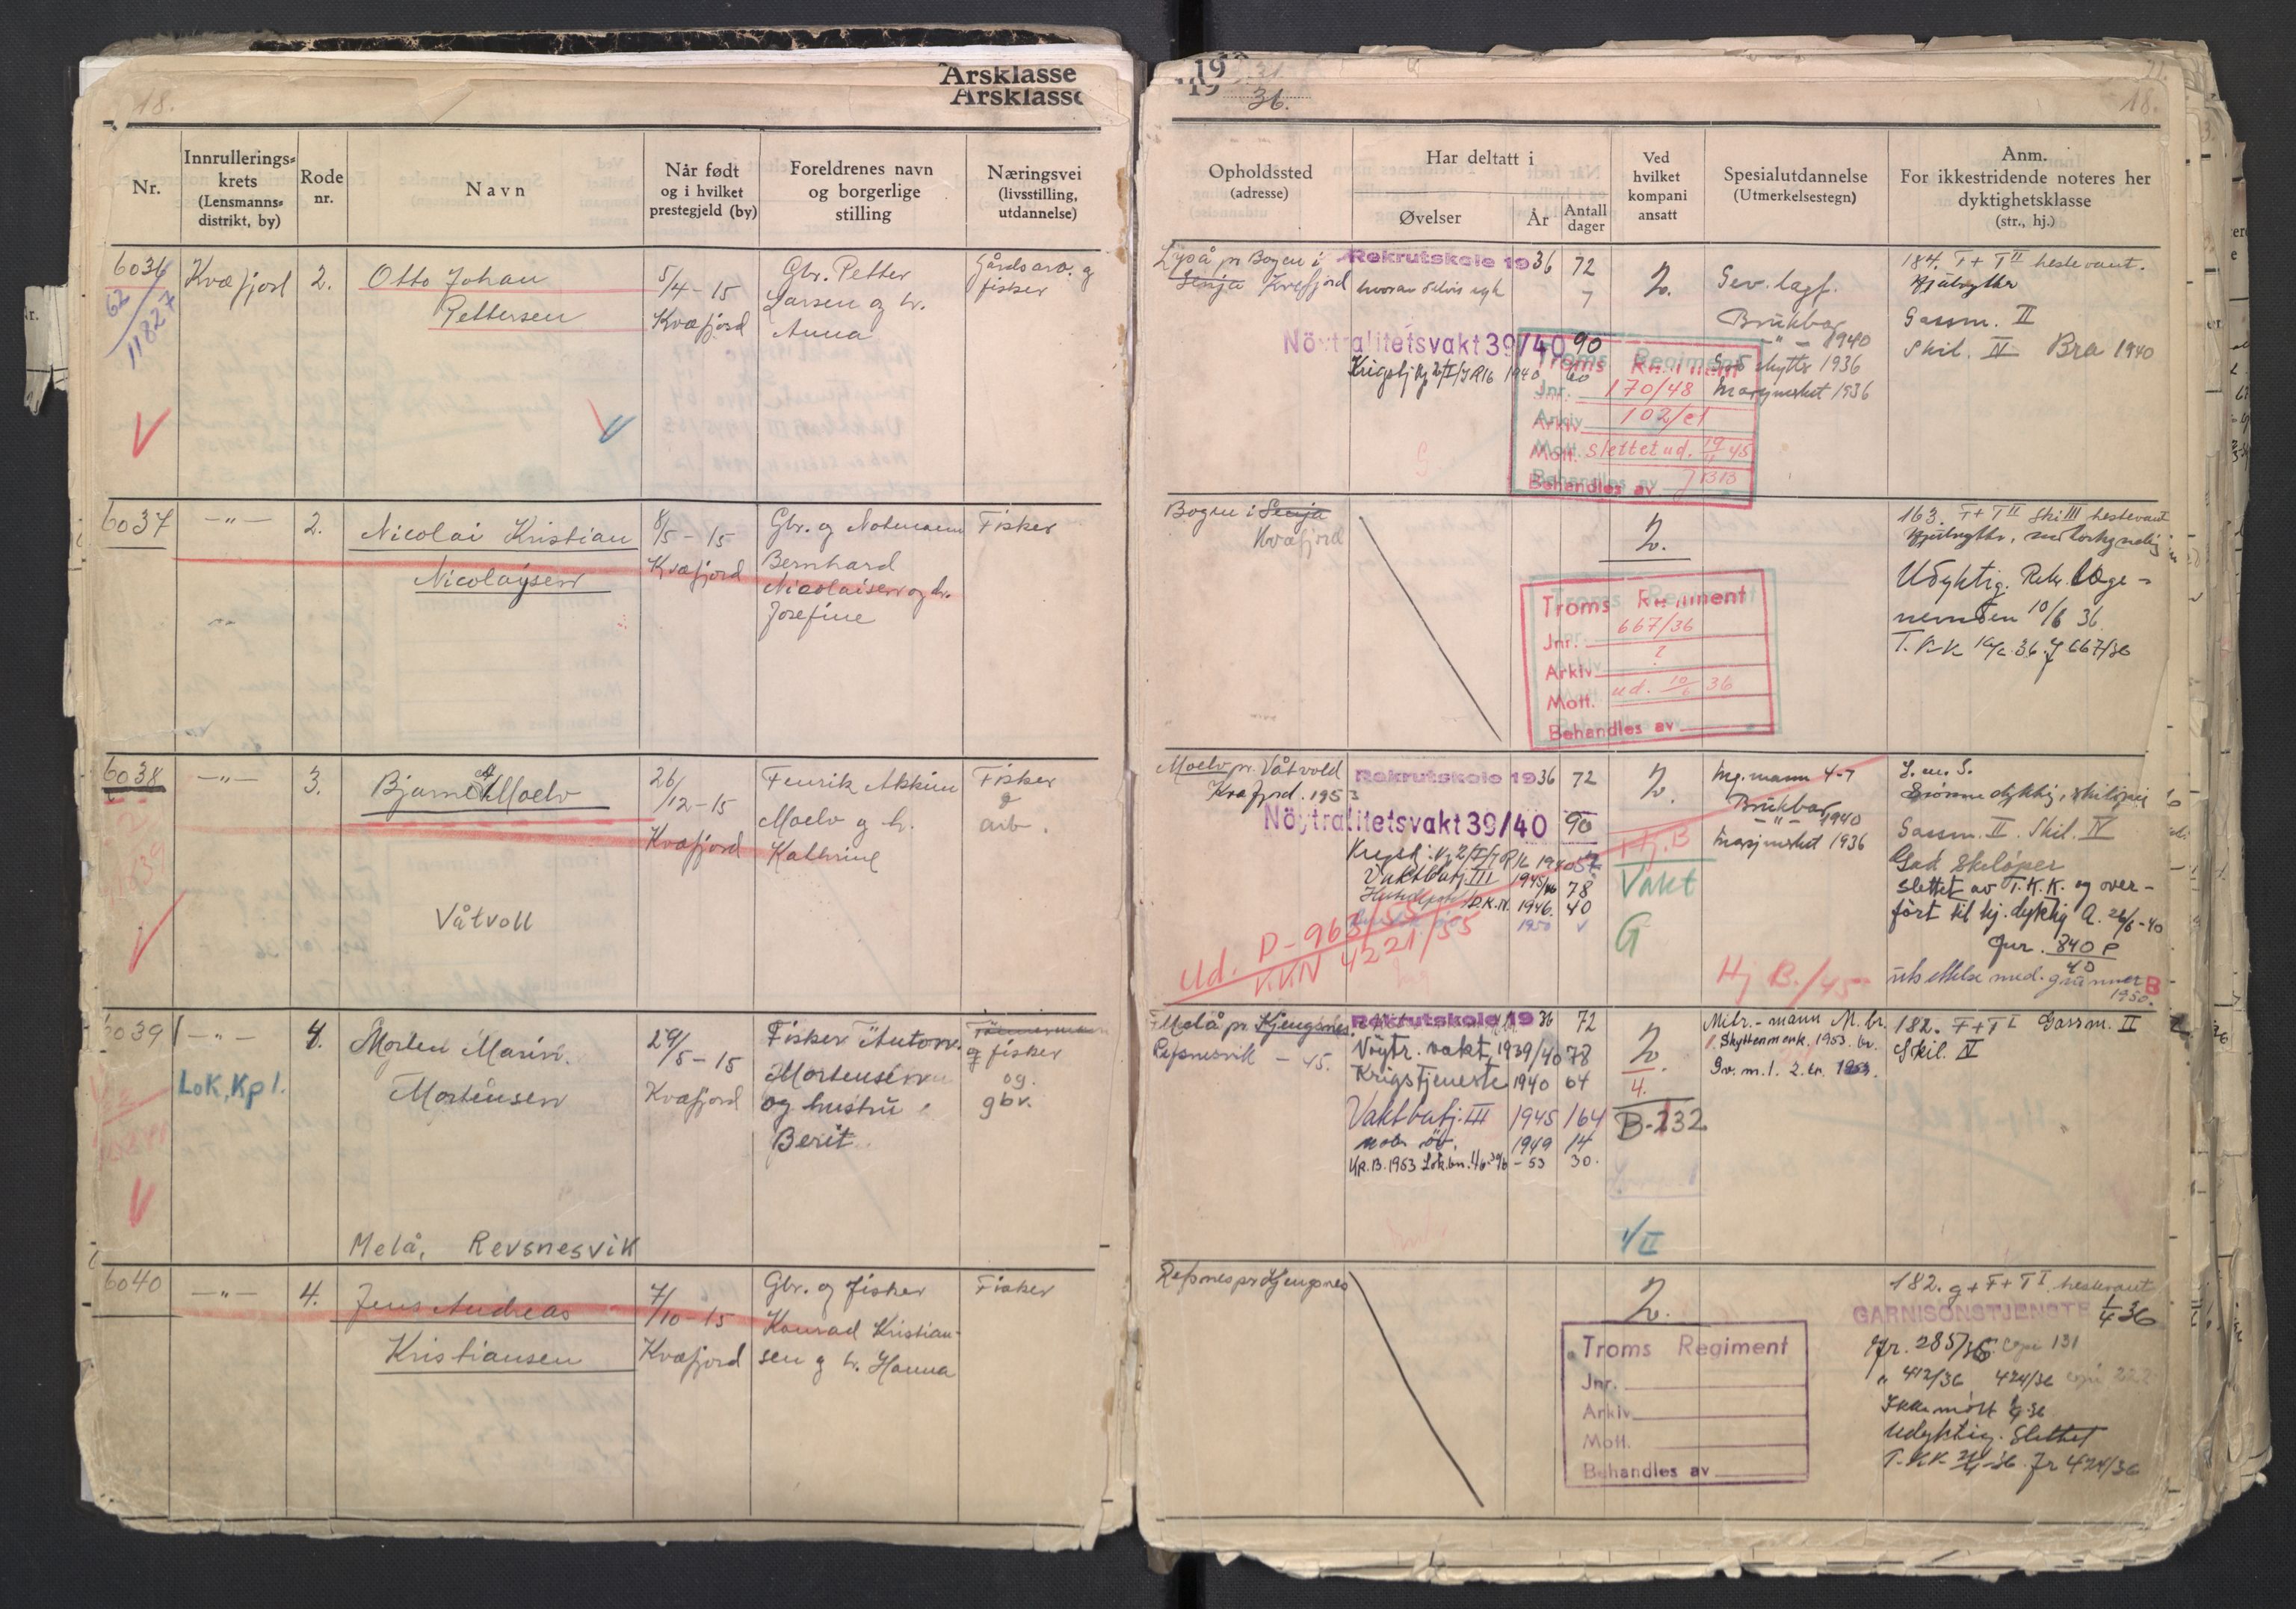 Årsklasse
Årsklasse
18.
Nr.
Innrullerings=
krets
(Lensmanns=
distrikt, by)
Rode
nr.
Navn
Når født
og i hvilket
prestegjeld (by)
Foreldrenes navn
og borgerlige
stilling
Næringsvei
(livsstilling,
utdannelse)
6036
62
11827
Kvæfjord
2.
Otto Johan
Pettersen
5/4-15
Kvæfjord
Gbr. Petter
Larsen og h.
Anna
Gårdsarb. og
fisker
6037
-"-
2.
Nicolai Kristian
Nicolaysen
8/5-15
Kvæfjord
Gbr. og Notmann
Bernhard
Nicolaisen og h.
Josefine
Fisker
6038
-"-
3.
Bjarne Moelv
Våtvoll
26/12-15
Kvæfjord
Fenrik
Moelv og h.
Kathrine
Fisker
og
arb.
6039
-"-
LoK, Kp 1.
4.
Morten Marin.
Mortensen
Melå, Revsnesvik
29/5-15
Kvæfjord
Fisker Anton
Mortensen
og hustru
Berit
og fisker
og
gbr.
6040
-"-
4.
Jens Andreas
Kristiansen
7/10-15
Kvæfjord
Gbr. og fisker
Konrad Kristian-
sen og h. Hanna
Fisker
19
19
31
36.
18.
Opholdssted
(adresse)
Har deltatt i
Øvelser
År
Antall
dager
Ved
hvilket
kompani
ansatt
Spesialutdannelse
(Utmerkelsestegn)
Anm.
For ikkestridende noteres her
dyktighetsklasse
(str., hj.)
pr Bogen i
Senja Kvæfjord
Rekrutskole 1936 72
hvorav delvis syk 7
Nöytralitetsvakt 39/40 90
Krigstj. Kp 2/I/IR16 1940 60
2.
Gev. lagf.
Brukbar
-"- 1940
skytter 1936
Marsjmerket 1936
184. F+TII hestevant.
Hjulrytter
Gassm. II
Skil. IV Bra 1940
Troms Regiment
Jnr. 170/48
Arkiv 102/el
Mott. Slettet ud. 19/11 45
Behandles av JBB
Bogen i Senja
Kvæfjord
2.
Troms Regiment
Jnr. 667/36
Arkiv 2
Mott. ud. 10/6 36
Behandles av
163. F+TII Ski III hestevant
Hjulrytter, motorkyndig
Udyktig. Rekr. læge-
nemnden 10/6 36.
T.KK 10/6.36. J 667/36
Moelv pr. Våtvold
Kvæfjord. 1953
Rekrutskole 1936 72
Nöytralitetsvakt 39/40 90
Krigstj. Kp 2/I/IR16 1940 57
Vaktbatj. III 1945/46 78
D.K.N. 1946. 40
1950
Ud. P-963/55
KKN 4221/55
2.
Hj. B
Vakt
G
Mg. mann 4-7
Brukbar
-"- 1940
Marsjmerket 1936
Hj B./45
S. m. S.
Gassm. II. Skil. IV
God skiløper
Slettet av T.K.K. og over-
ført til hj. dyktig A. 26/8-40
Jnr. 840 P/40
utsettelse med. grunner B
1950.
Melå pr. Kjengsnes
Refsnesvik - 45.
Rekrutskole 1936 72
Nöytr. vakt 1939/40 78
Krigstjeneste 1940 64
Vaktbatj. III 1945 164
mob. öv. 1949 14
Kp. B. 1953 Lok.bn. 1/6-30/6 -53 30.
2.
4.
B-132
1/II
Mitr.-mann M. br.
Skyttermerk. 1953. br.
Gv. m. 1. 2. kr. 1953.
182. F+TI Gassm. II
Skil. IV
Refsnes pr Kjengsnes
2.
Troms Regiment
Jnr.
Arkiv
Mott.
Behandles av
182. g+F+TI hestevant
GARNISONSTJENGTE 1/4 36
Jr. 285/36 copi 131
" 412/36 424/36 copi 222
Ikke møtt 1/4-36
Udyktig. Slettet
T.KK 21/4-36. Jr 424/36